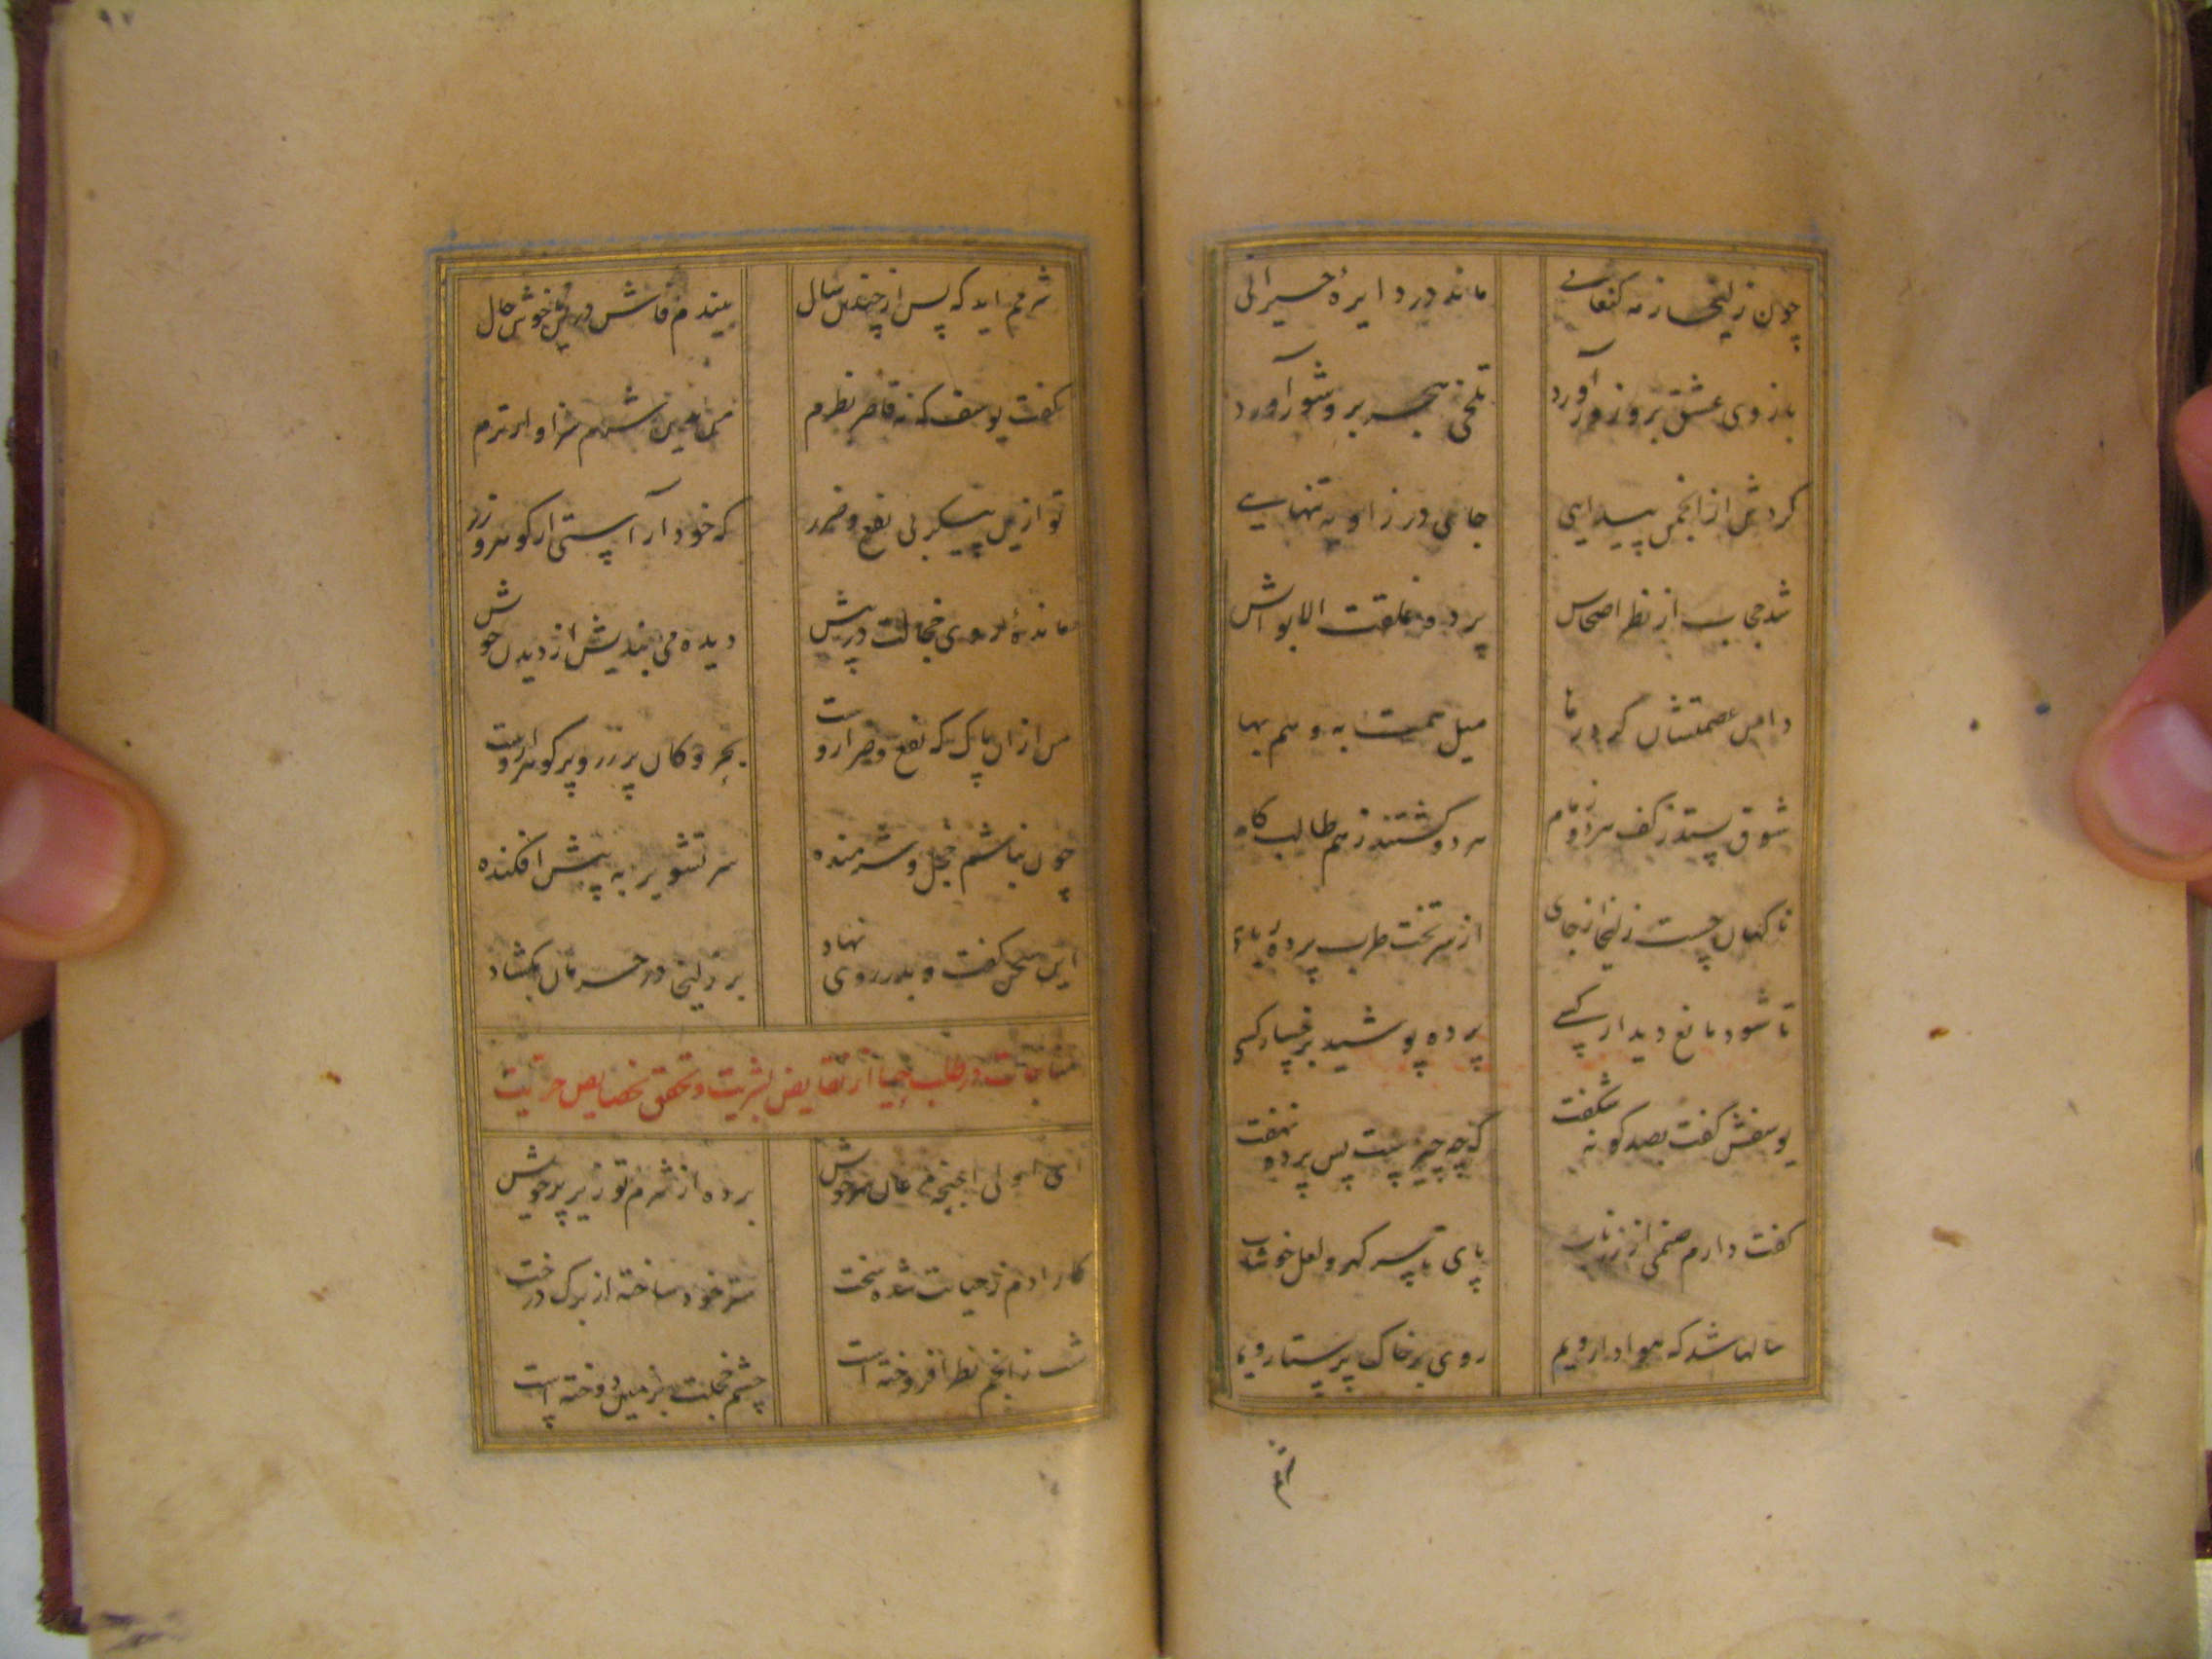 چون زلیخا ز مه کنعانی ماند در دایرهٔ حیرانی
بازوی عشق برو زور آورد تلخی هجر برو شور آورد
کردش از انجمن پیدایی جای در زاویه تنهایی
شد حجاب از نظر اصحابش پرده غلقت الابوابش
دامن عصمتشان کرد رها میل همت به و هم بها
شوق بستد ز کف هر دو زمام هر دو گشتند ز هم طالب کام
ناگهان جست زلیخا از جای از سر تخت طرب پرده کشای
تا شود مانع دیدار کسی پرده پوشید برخسار کسی
یوسفش گفت بصد گونه شگفت که چه چیز ست پس پرده نهفت
گفت دارم صنمی از زر ناب پای تا سر گهر و لعل خوشاب
سالها شد که هوادار ویم روی بر خاک پرستار ویم
شرمم اید که پس از چندین سال بیندم فاش درین خوش حال
گفت یوسف که نه قاصر نظرم من بدین شرم سزاوارترم
تو ازین پیکر بی نفع و ضرر که خود آراستی از گوهر و زر
مانده روی خجالت در پیش دیده می بندیش از دیدن خویش
من ازان پاک که نفع و ضر ازوست بحر و کان پر زر و پر گوهر ازوست
چون نباشم خجل و شرمنده سر تشویر به پیش افکنده
این سخن گفت و بدر روی نهاد بر زلیخا در حرمان بگشاد
مناجات در طلب حیا از نقایض بشریت و تحقق بخصایص حریت
ای برده از شرم تو زیر پر خویش
کار ادم ز حیات شده سخت ستر خود ساخته از برک درخت
شب ز انجم نظر افروخته است چشم خجلت بزمین دوخته است